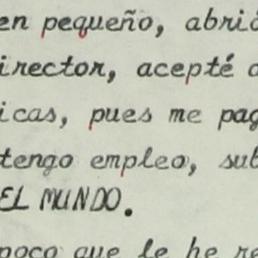 en pequeño, abrió
irector, acepté
icas, pues me pag
tengo empleo, sub
EL MUNDO.
poco que le he re